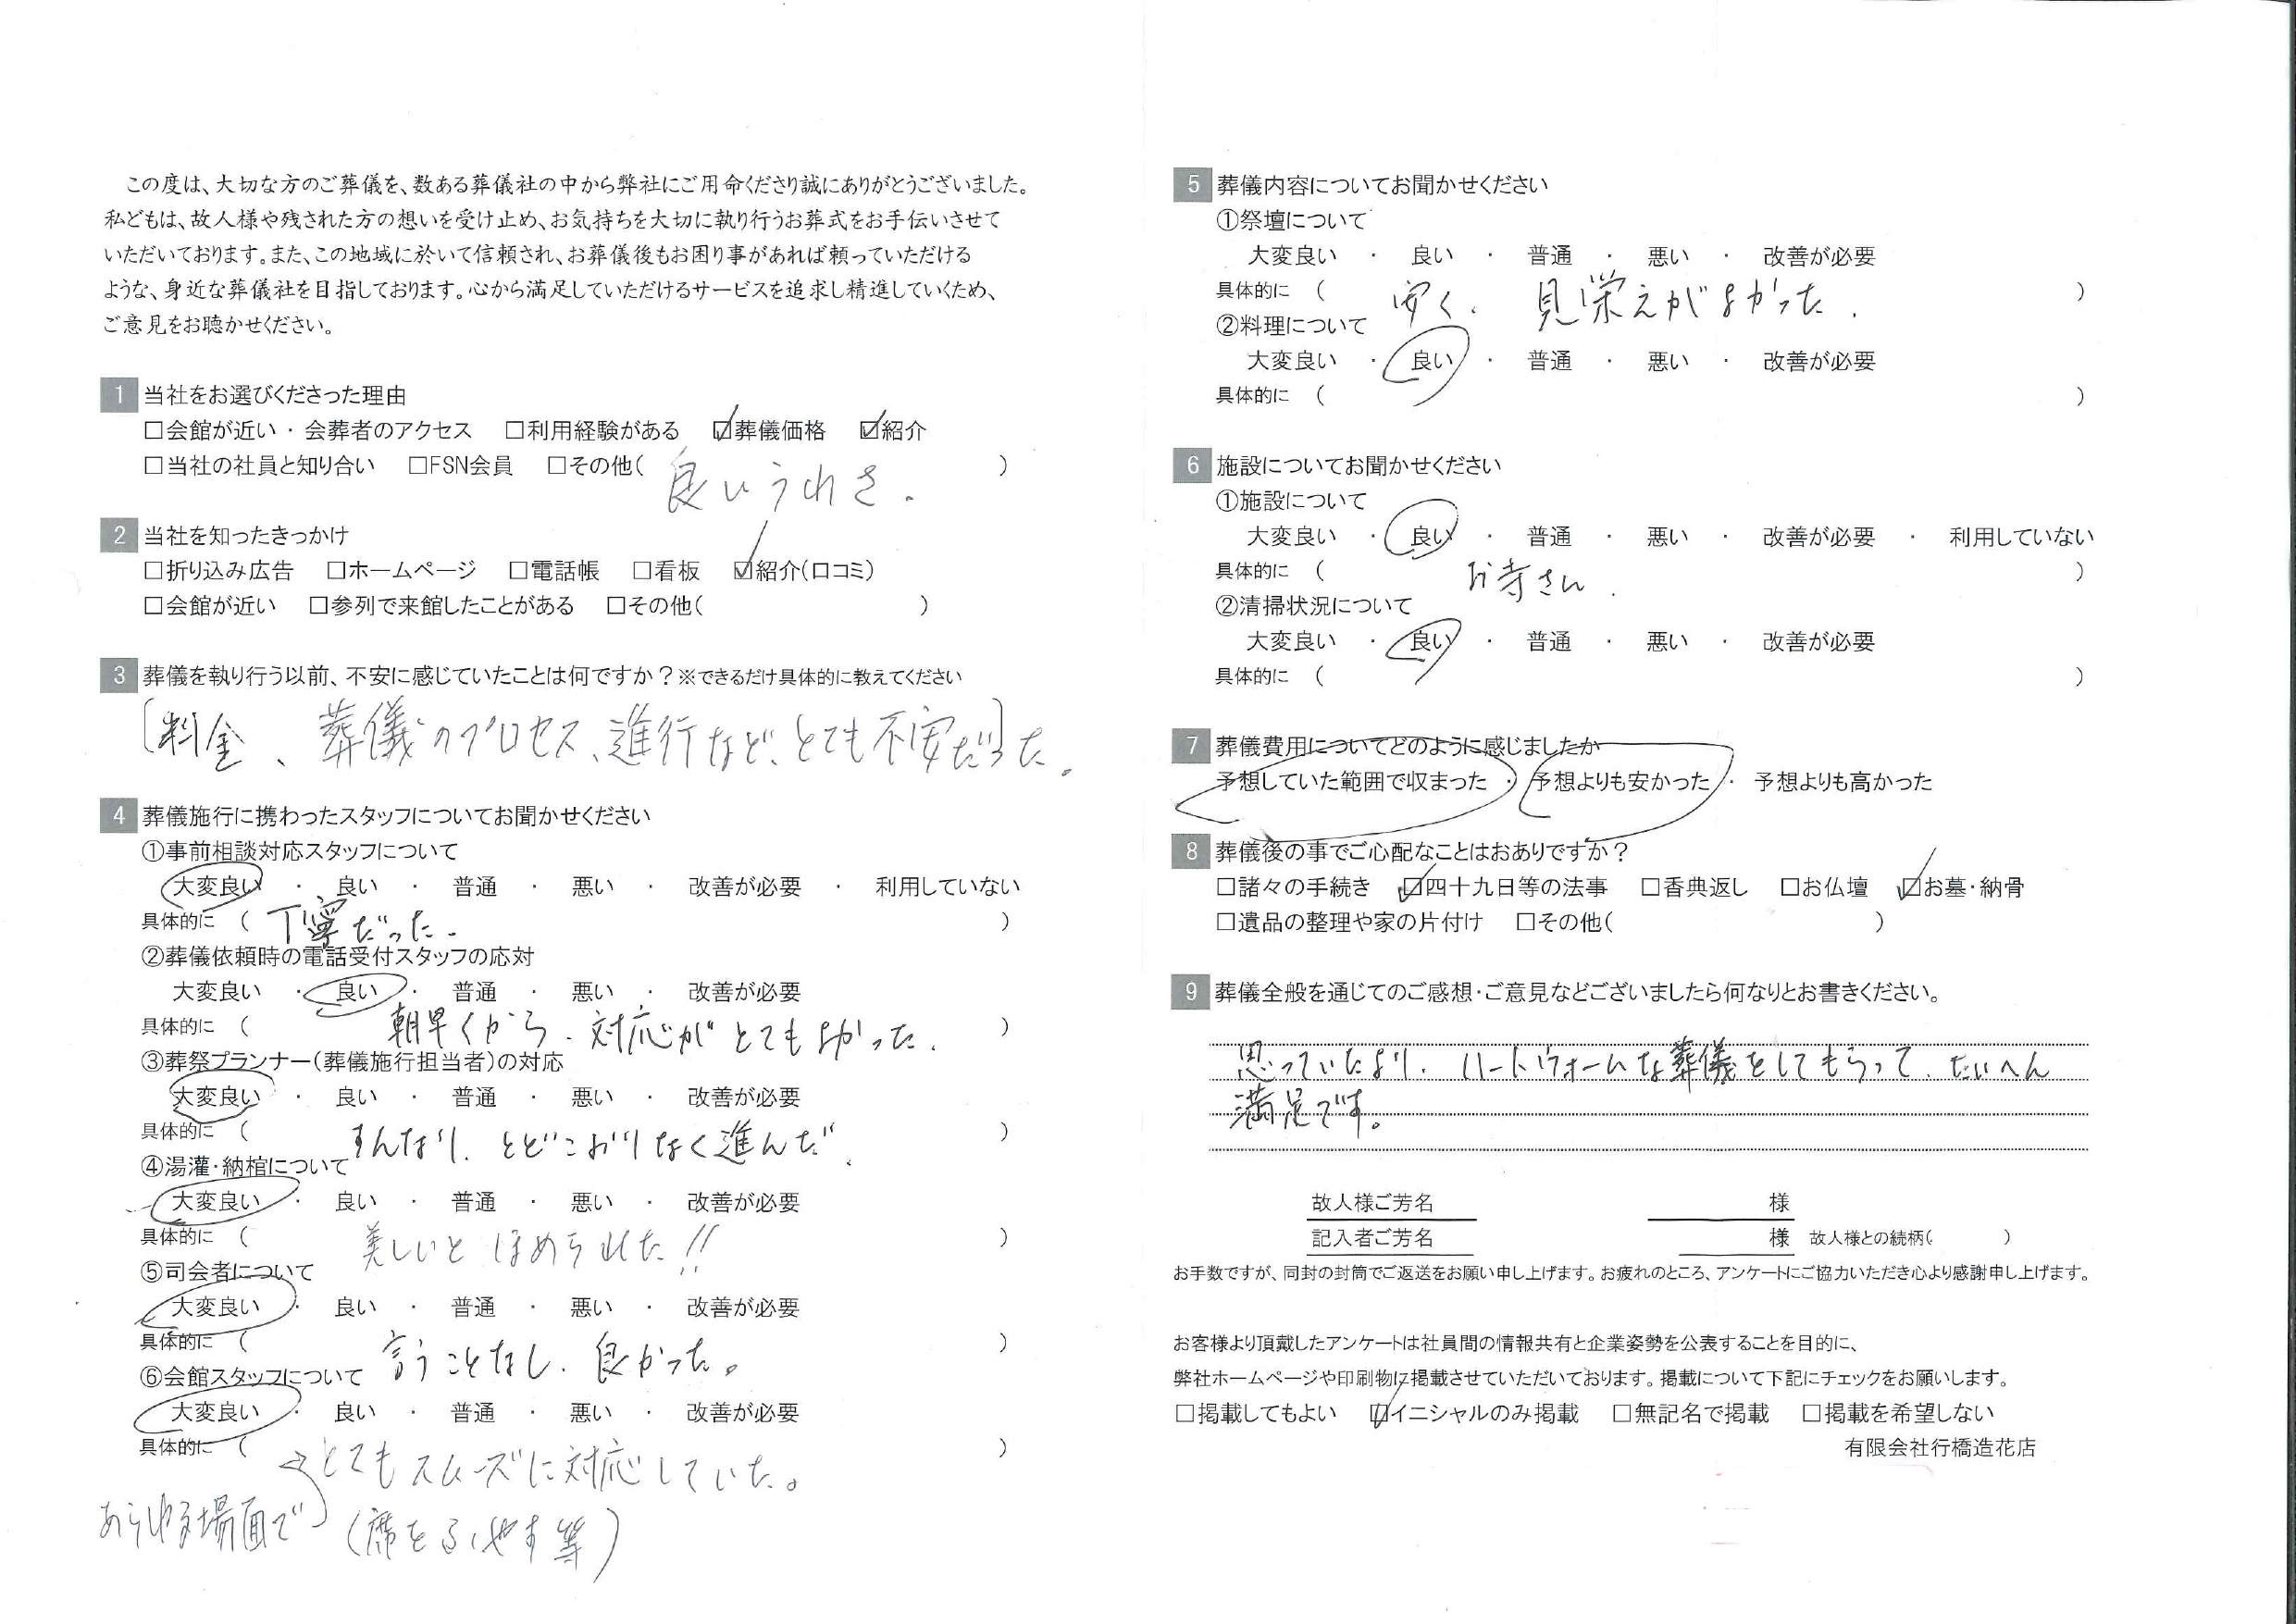 この度は、大切な方のご葬儀を、数ある葬儀社の中から弊社にご用命くださり誠にありがとうございました。
私どもは、故人様や残された方の想いを受け止め、お気持ちを大切に執り行うお葬式をお手伝いさせて
いただいております。また、この地域に於いて信頼され、お葬儀後もお困り事があれば頼っていただける
ような、身近な葬儀社を目指しております。心から満足していただけるサービスを追求し精進していくため、
ご意見をお聴かせください。
1 当社をお選びくださった理由
□会館が近い・会葬者のアクセス □利用経験がある ☑葬儀価格 ☑紹介
□当社の社員と知り合い □FSN会員 □その他( )
良いうわさ。
2 当社を知ったきっかけ
□折り込み広告 □ホームページ □電話帳 □看板 ☑紹介(口コミ)
□会館が近い □参列で来館したことがある □その他( )
3 葬儀を執り行う以前、不安に感じていたことは何ですか？※できるだけ具体的に教えてください
料金、葬儀のプロセス、進行など、とても不安だった。
4 葬儀施行に携わったスタッフについてお聞かせください
①事前相談対応スタッフについて
大変良い ・ 良い ・ 普通 ・ 悪い ・ 改善が必要 ・ 利用していない
具体的に ( 丁寧だった。 )
②葬儀依頼時の電話受付スタッフの応対
大変良い ・ 良い ・ 普通 ・ 悪い ・ 改善が必要
具体的に ( 朝早くから、対応がとてもよかった。 )
③葬祭プランナー(葬儀施行担当者)の対応
大変良い ・ 良い ・ 普通 ・ 悪い ・ 改善が必要
具体的に ( すんなり、とどこおりなく進んだ。 )
④湯灌・納棺について
大変良い ・ 良い ・ 普通 ・ 悪い ・ 改善が必要
具体的に ( 美しいとほめられた!! )
⑤司会者について
大変良い ・ 良い ・ 普通 ・ 悪い ・ 改善が必要
具体的に ( 言うことなし、良かった。 )
⑥会館スタッフについて
大変良い ・ 良い ・ 普通 ・ 悪い ・ 改善が必要
具体的に ( )
とてもスムーズに対応していた。
あらゆる場面で (席をふやす等)
5 葬儀内容についてお聞かせください
①祭壇について
大変良い ・ 良い ・ 普通 ・ 悪い ・ 改善が必要
具体的に ( 安く、見栄えがよかった。 )
②料理について
大変良い ・ 良い ・ 普通 ・ 悪い ・ 改善が必要
具体的に ( )
6 施設についてお聞かせください
①施設について
大変良い ・ 良い ・ 普通 ・ 悪い ・ 改善が必要 ・ 利用していない
具体的に ( お寺さん。 )
②清掃状況について
大変良い ・ 良い ・ 普通 ・ 悪い ・ 改善が必要
具体的に ( )
7 葬儀費用についてどのように感じましたか
予想していた範囲で収まった ・ 予想よりも安かった ・ 予想よりも高かった
8 葬儀後の事でご心配なことはおありですか？
□諸々の手続き ☑四十九日等の法事 □香典返し □お仏壇 ☑お墓・納骨
□遺品の整理や家の片付け □その他( )
9 葬儀全般を通じてのご感想・ご意見などございましたら何なりとお書きください。
思っていたより、ハートウォームな葬儀をしてもらって、たいへん
満足です。
故人様ご芳名 様
記入者ご芳名 様 故人様との続柄( )
お手数ですが、同封の封筒でご返送をお願い申し上げます。お疲れのところ、アンケートにご協力いただき心より感謝申し上げます。
お客様より頂戴したアンケートは社員間の情報共有と企業姿勢を公表することを目的に、
弊社ホームページや印刷物に掲載させていただいております。掲載について下記にチェックをお願いします。
□掲載してもよい ☑イニシャルのみ掲載 □無記名で掲載 □掲載を希望しない
有限会社行橋造花店